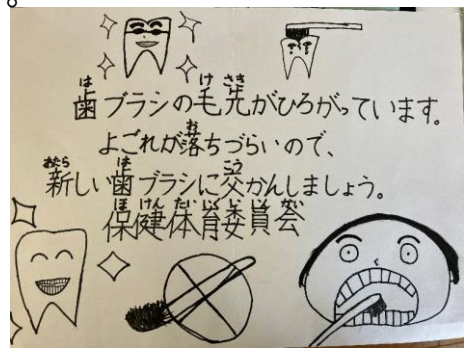 歯ブラシの毛先がひろがっています。
よごれが落ちづらいので、
新しい歯ブラシに交かんしましょう。
保健体育委員会